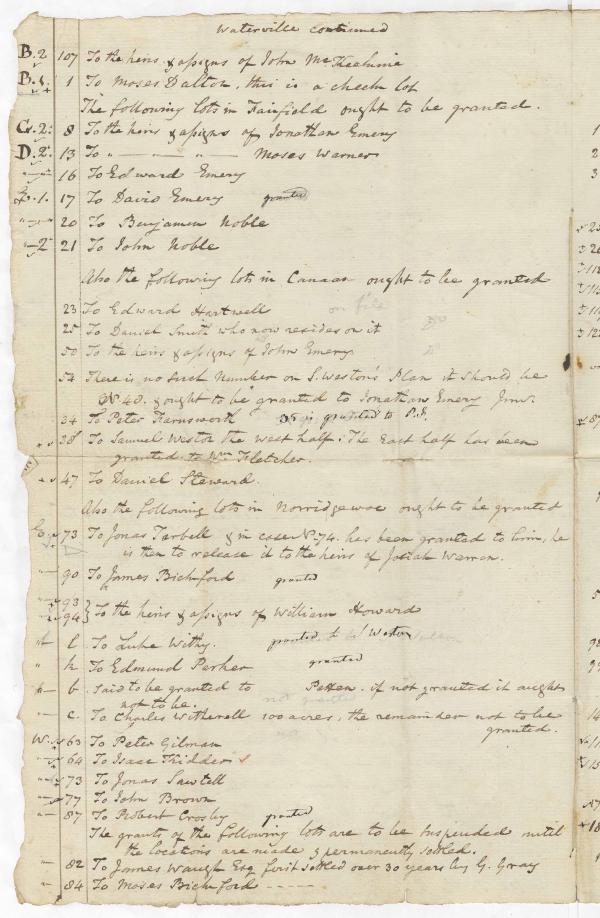 Waterville continued
B. 2 107 To the heirs & assigns of John McKechnie
B. 1. 1 To Moses Dalton, this is a check lot
The following lots in Fairfield ought to be granted.
G. 2. 8 To the heirs & assigns of Jonathan Emery
D. 2. 13 To " — " — Moses Warner
" 16 To Edward Emery
E. 1. 17 To David Emery granted
" 20 To Benjamin Noble
" 2 21 To John Noble
Also the following lots in Canaan ought to be granted
23 To Edward Hartwell on file
25 To Daniel Smith who now resides on it
50 To the heirs & assigns of John Emery
54 There is no such Number on S. Weston's Plan it should be
No. 40. & ought to be granted to Jonathan Emery Junr.
34 To Peter Farnsworth 35 is granted to P. F.
38 To Samuel Weston the west half: The East half has been
granted to Wm Fletcher.
47 To Daniel Steward.
Also the following lots in Norridgewoc ought to be granted
E. 73 To Jonas Tarbell & in case No. 74. has been granted to him, he
is then to release it to the heirs of Josiah Warren.
" 90 To James Bickford granted
93
94 } To the heirs & assigns of William Howard
l To Luke Withy. granted to Weston
" k To Edmund Parker granted
b. said to be granted to Patten. if not granted it ought
not to be.
" c. To Charles Witherell 100 acres, the remainder not to be
granted.
W. 63 To Peter Gilman
64 To Isaac Kidder
73 To Jonas Sawtell
77 To John Brown
87 To Robert Crosby granted
The grants of the following lots are to be suspended until
the locations are made & permanently settled.
" 82 To James Waugh Esq first settled over 30 years by G. Gray
" 84 To Moses Bickford -----